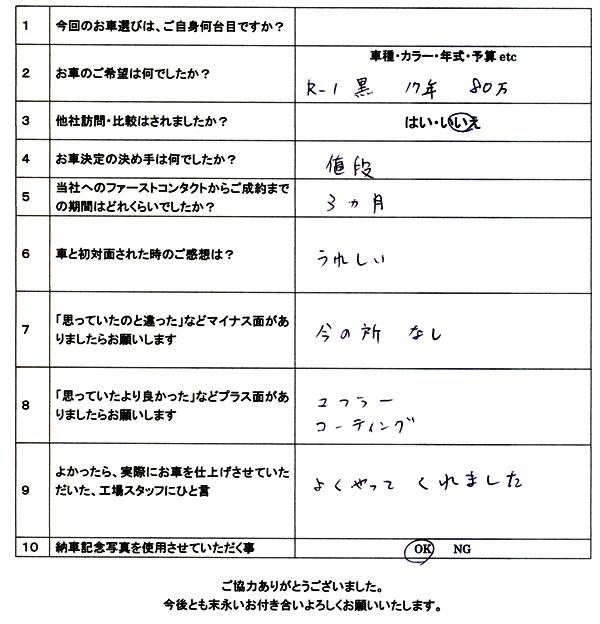 1 今回のお車選びは、ご自身何台目ですか？
2 お車のご希望は何でしたか？
車種・カラー・年式・予算 etc
R-1 黒 17年 80万
3 他社訪問・比較はされましたか？ はい・いいえ
4 お車決定の決め手は何でしたか？ 値段
5 当社へのファーストコンタクトからご成約まで
の期間はどれくらいでしたか？
3ヵ月
6 車と初対面された時のご感想は？ うれしい
7 「思っていたのと違った」などマイナス面があ
りましたらお願いします
今の所 なし
8 「思っていたより良かった」などプラス面があ
りましたらお願いします
コーティング
9 よかったら、実際にお車を仕上げさせていた
だいた、工場スタッフにひと言
よくやって くれました
10 納車記念写真を使用させていただく事 OK NG
ご協力ありがとうございました。
今後とも末永いお付き合いよろしくお願いいたします。